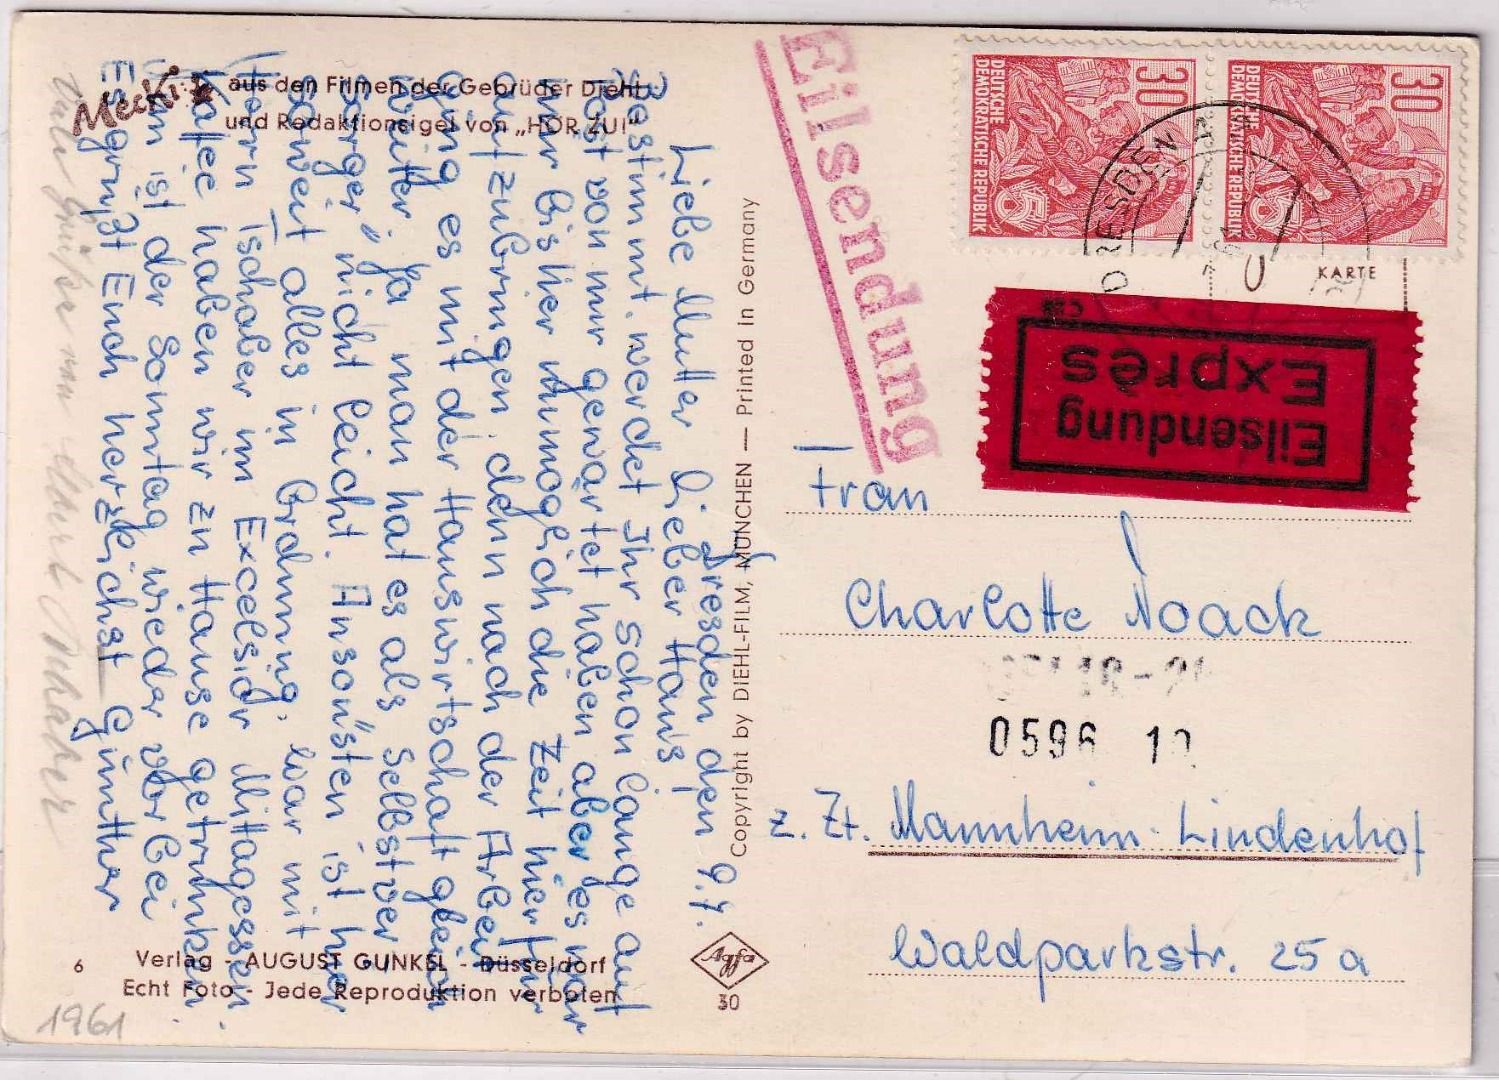 Mecki
aus den Filmen der Gebrüder Diehl
und Redaktionsigel von „HÖR ZU!"
Dresden den 9.4.
Liebe Mutter lieber Hans!
Bestimmt werdet Ihr schon lange auf
Post von mir gewartet haben aber es war
mir bisher unmöglich die Zeit hierfür
aufzubringen, denn nach der Arbeit
ging es mit der Hauswirtschaft gleich
weiter. Ja man hat es als „Selbstver
sorger" nicht leicht. Ansonsten ist hier
soweit alles in Ordnung. War mit
Herrn Tschaber im Excelsior Mittagessen.
Kaffee haben wir zu Hause getrunken.
ist der Sonntag wieder vorbei
Es grüßt Euch herzlichst Günther
Verlag - AUGUST GUNKEL - Düsseldorf
Echt Foto - Jede Reproduktion verboten
6
1961
Copyright by DIEHL-FILM, MÜNCHEN — Printed in Germany
Agfa
30
Eilsendung
30
DEUTSCHE
DEMOKRATISCHE REPUBLIK
30
DEUTSCHE
DEMOKRATISCHE REPUBLIK
DRESDEN
KARTE
Eilsendung
Exprès
Frau
Charlotte Noack
0596 10
z. Zt. Mannheim-Lindenhof
Waldparkstr. 25a